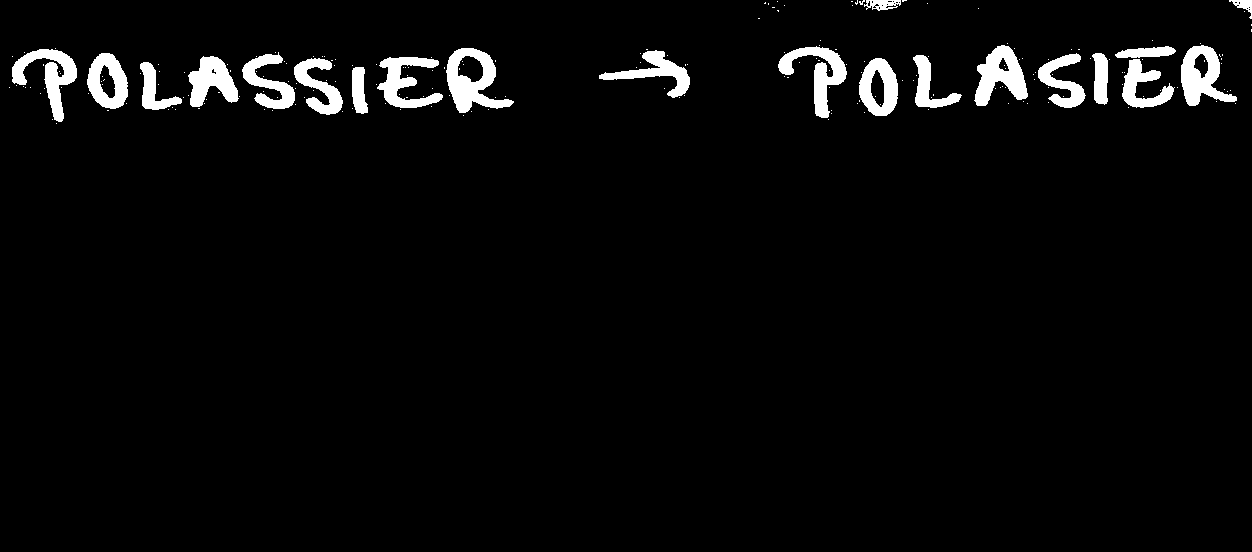 POLASSIER → POLASIER